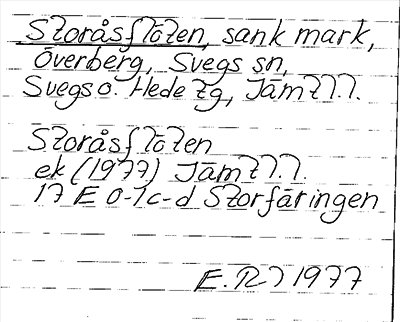 Storåsflöten, sank mark,
Överberg, Svegs sn,
Svegs o. Hede tg, Jämtl.
Storåsflöten
ek (1977) Jämtl.
17 E 0-1 c-d Storfåringen
1977